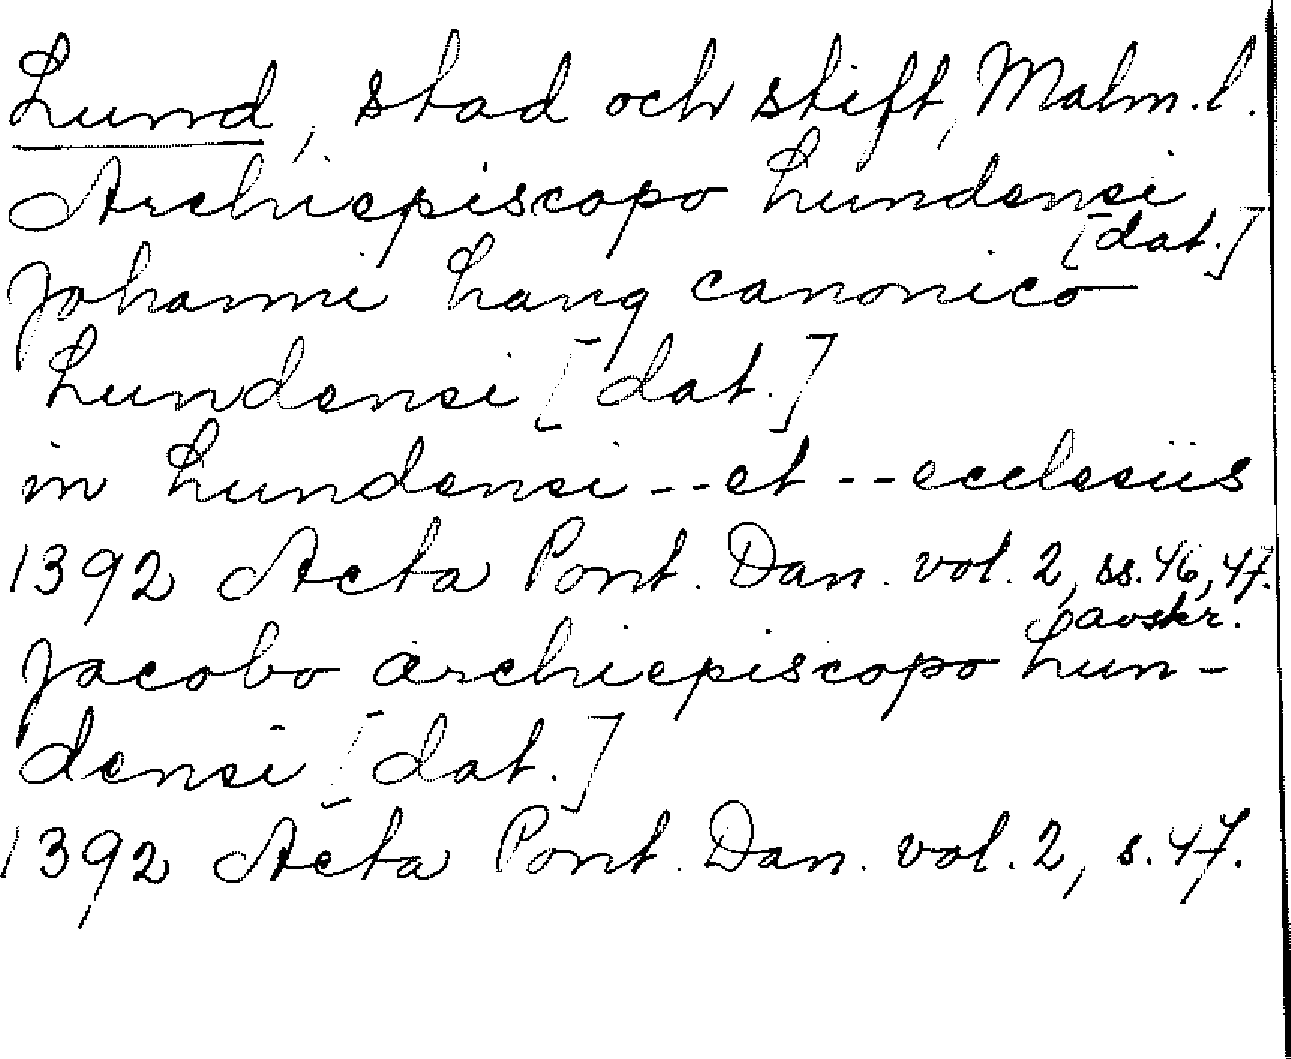 Lund, stad och stift, Malm.l.
Archiepiscopo Lundensi
[dat.]
Johanni Lang canonico
Lundensi [dat.]
in Lundensi -- et -- ecclesiis
1392 Acta Pont. Dan. vol. 2, ss. 46, 47.
avskr.
Jacobo archiepiscopo Lun-
densi [dat.]
1392 Acta Pont. Dan. vol. 2, s. 47.